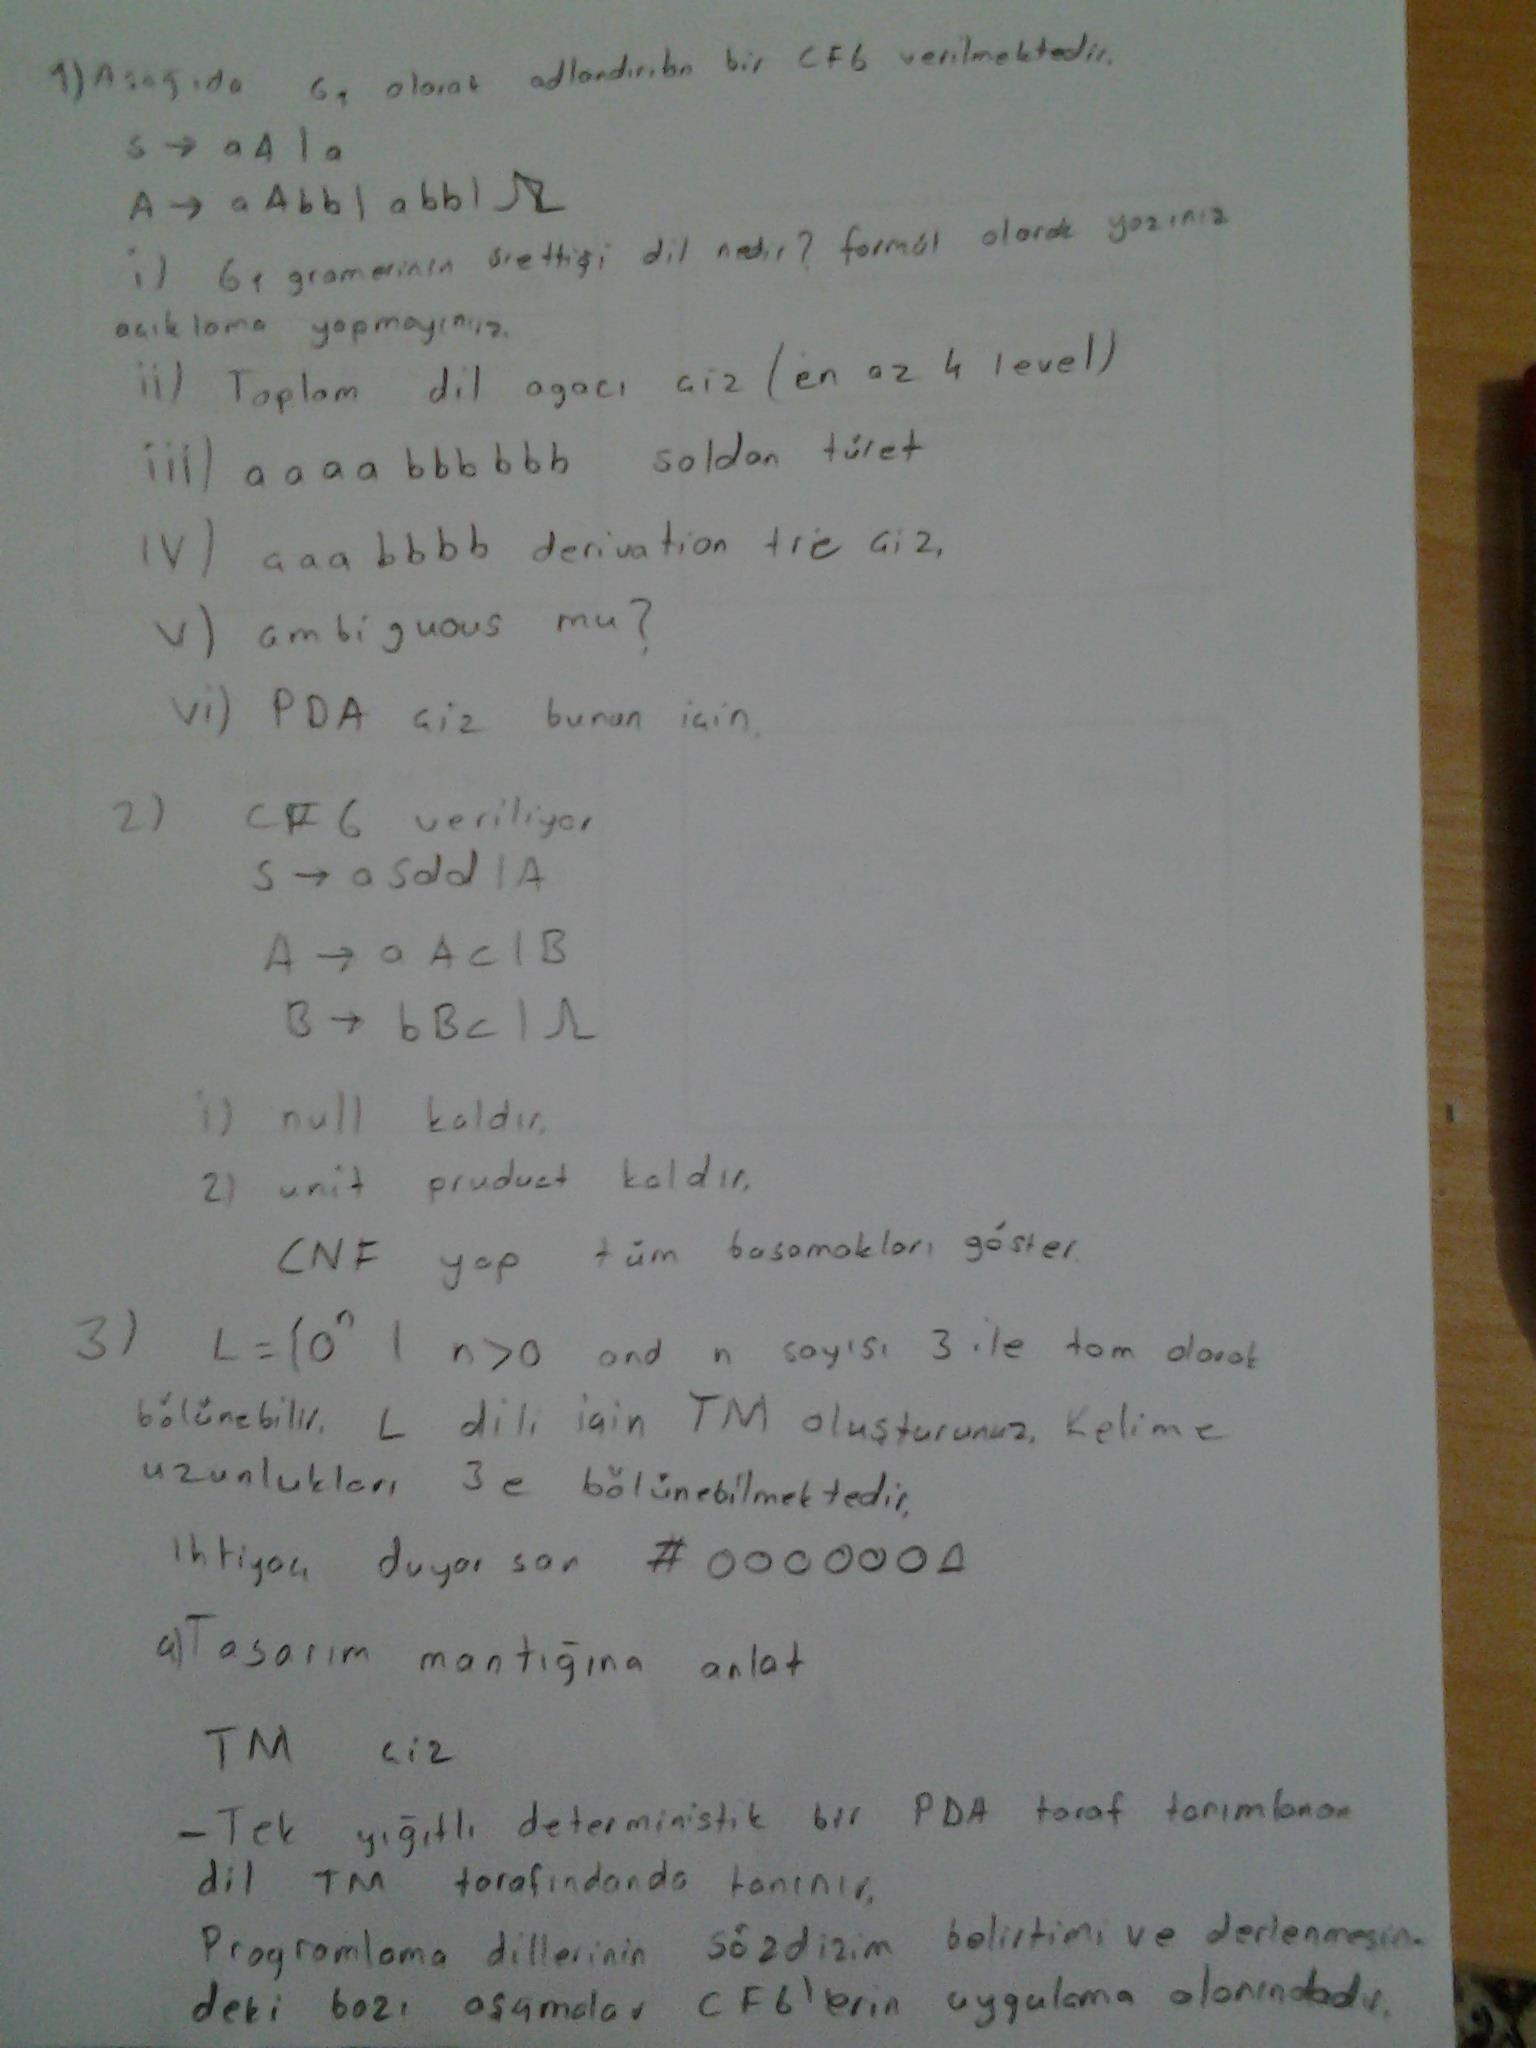 1) Aşağıda G1 olarak adlandırılan bir CFG verilmektedir.
S → aA | a
A → aAbb | abb | Λ
i) G1 gramerinin ürettiği dil nedir? formül olarak yazınız
açıklama yapmayınız.
ii) Toplam dil agacı çiz (en az 4 level)
iii) aaaabbbbbb soldan türet
IV) aaabbbb derivation trie çiz.
V) ambiguous mu?
vi) PDA çiz bunun için.
2) CFG veriliyor
S → aSdd | A
A → aAc | B
B → bBc | Λ
i) null kaldır.
2) unit pruduct kaldır.
CNF yap tüm basamakları göster.
3) L = {0ⁿ | n>0 and n sayısı 3 ile tam olarak
bölünebilir. L dili için TM oluşturunuz. Kelime
uzunlukları 3e bölünebilmektedir.
ihtiyaç duyarsan # 000000Δ
a) Tasarım mantığına anlat
TM çiz
- Tek yığıtlı deterministik bir PDA taraf tanımlanan
dil TM tarafındanda tanınır.
Programlama dillerinin sözdizim belirtimi ve derlenmesin-
deki bazı aşamalar CFG'lerin uygulama alanındadır.